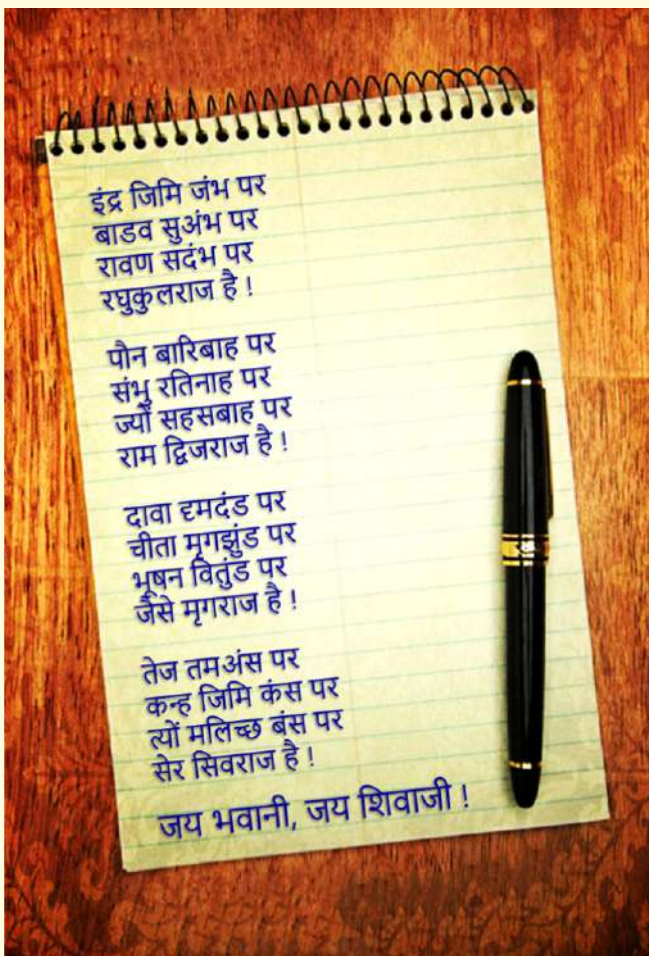 इंद्र जिमि जंभ पर
बाडव सुअंभ पर
रावण सदंभ पर
रघुकुलराज है !
पौन बारिबाह पर
संभु रतिनाह पर
ज्यों सहसबाह पर
राम द्विजराज है !
दावा द्रुमदंड पर
चीता मृगझुंड पर
भूषन वितुंड पर
जैसे मृगराज है !
तेज तमअंस पर
कन्ह जिमि कंस पर
त्यों मलिच्छ बंस पर
सेर सिवराज है !
जय भवानी, जय शिवाजी !